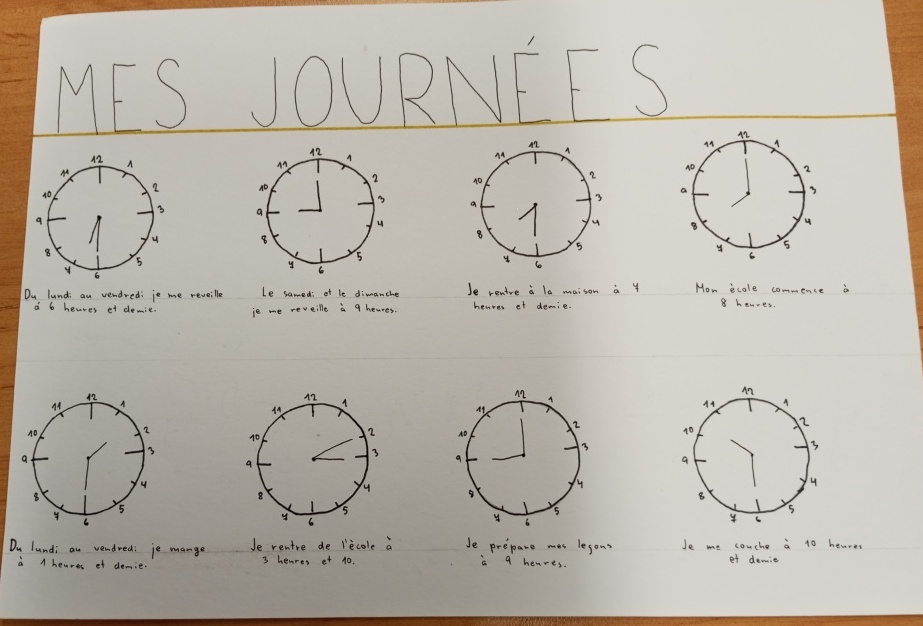 MES JOURNÉES
12 1 2 3 4 5 6 7 8 9 10 11
12 1 2 3 4 5 6 7 8 9 10 11
12 1 2 3 4 5 6 7 8 9 10 11
12 1 2 3 4 5 6 7 8 9 10 11
Du lundi au vendredi je me reveille
à 6 heures et demie.
Le samedi et le dimanche
je me reveille à 9 heures.
Je rentre à la maison à 7
heures et demie.
Mon ècole commence à
8 heures.
12 1 2 3 4 5 6 7 8 9 10 11
12 1 2 3 4 5 6 7 8 9 10 11
12 1 2 3 4 5 6 7 8 9 10 11
12 1 2 3 4 5 6 7 8 9 10 11
Du lundi au vendredi je mange
à 1 heures et demie.
Je rentre de l'ècole à
3 heures et 10.
Je prépare mes leçons
à 9 heures.
Je me couche à 10 heures
et demie